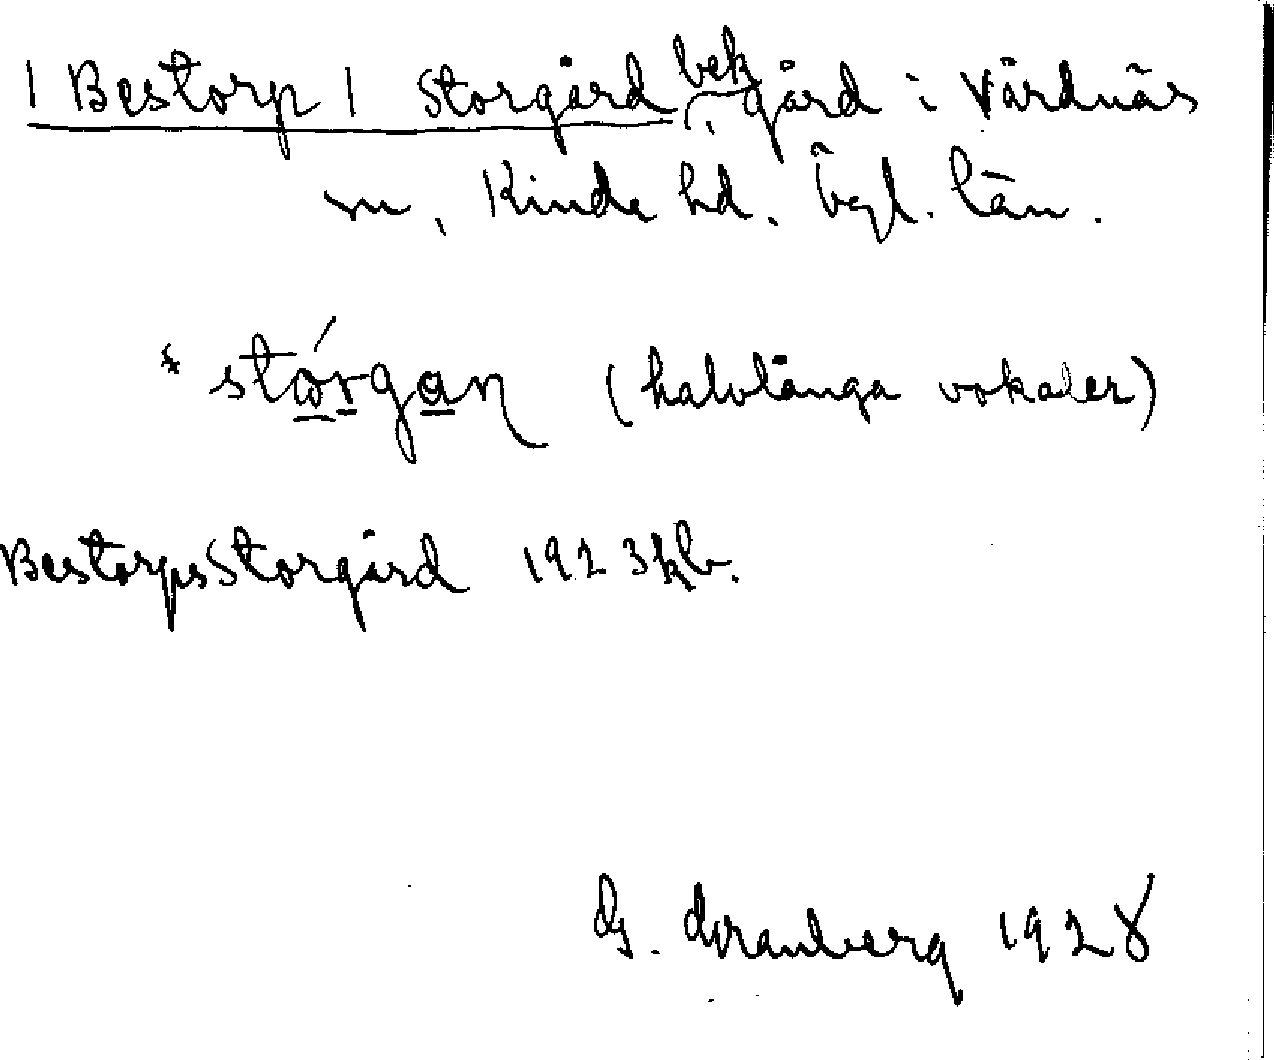 | Bestorp | Storgård, bek gård i Vårdnäs
sn, Kinda hd. Ögl. län.
* stórgaṇ (halvlånga vokaler)
BestorpsStorgård 1923 kb.
G. Granberg 1928